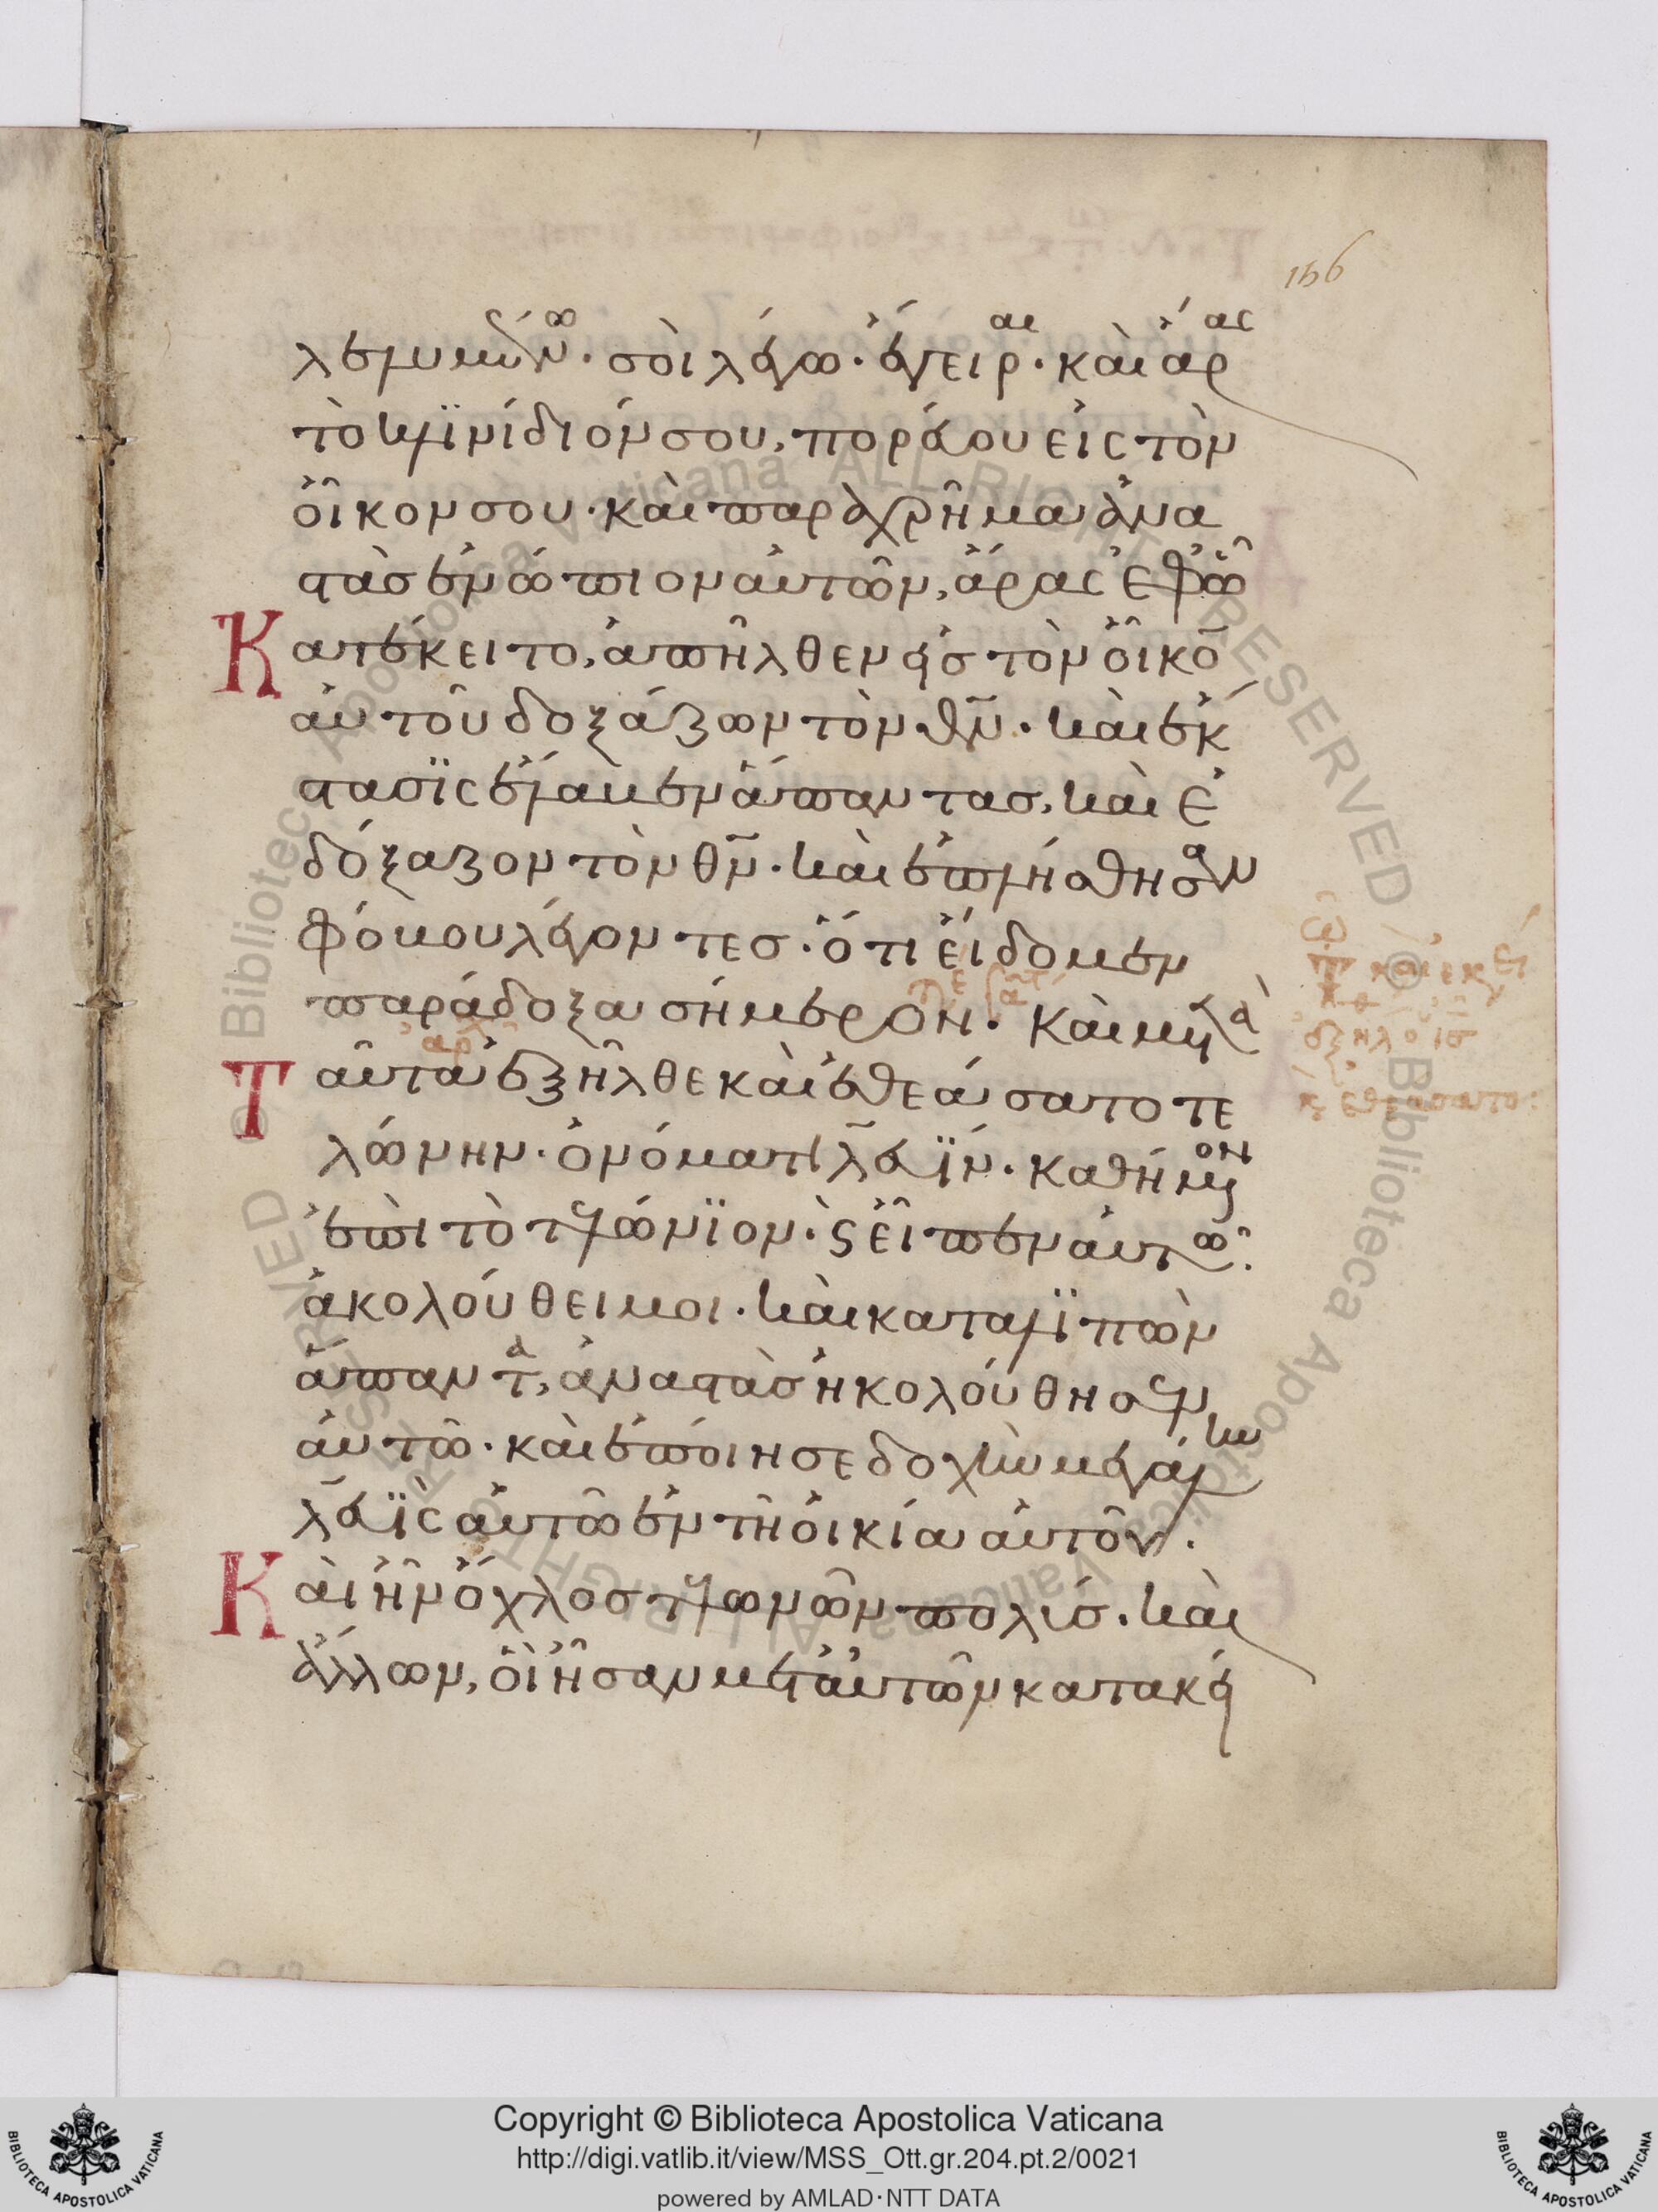 166
λελυμένω· σοὶ λέγω· ἔγειραι· καὶ ἄρας
τὸ κλινίδιόν σου, πορεύου εἰς τὸν
οἶκον σου· καὶ παραχρῆμα ἀνα
στὰς ἐνώπιον αὐτῶν, ἄρας ἐφ' ὧ
Κατέκειτο, ἀπῆλθεν εἰς τὸν οἶκο̅
αὐτοῦ δοξάζων τὸν θ̅ν̅· καὶ ἔκ
στασϊς ἔλαβεν ἅπαντας, καὶ ἐ
δόξαζον τὸν θ̅ν̅· καὶ ἐπλήσθησαν
φόβου λέγοντες· ὅτι εἴδομεν
παράδοξα σήμερον· Καὶ μετὰ
Ταῦτα ἐξῆλθε καὶ ἐθεάσατο τε
λώνην· ὀνόματι λευΐν· καθήμενον
ἐπὶ τὸ τελώνϊον· ϗ εἶπεν αὐτῶ·
ἀκολούθει μοι· καὶ καταλϊπὼν
ἅπαντα, ἀναστὰς ἠκολούθησεν
αὐτῶ· καὶ ἐποίησε δοχὴν μεγάλην
λευῒς αὐτῶ ἐν τῆ οἰκία αὐτοῦ·
Καὶ ἦν ὄχλος τελωνῶν πολύς· καὶ
ἄλλων, οἳ ἦσαν μετ' αὐτῶν κατακεί
Copyright © Biblioteca Apostolica Vaticana
http://digi.vatlib.it/view/MSS_Ott.gr.204.pt.2/0021
powered by AMLAD·NTT DATA
BIBLIOTECA APOSTOLICA VATICANA
BIBLIOTECA APOSTOLICA VATICANA